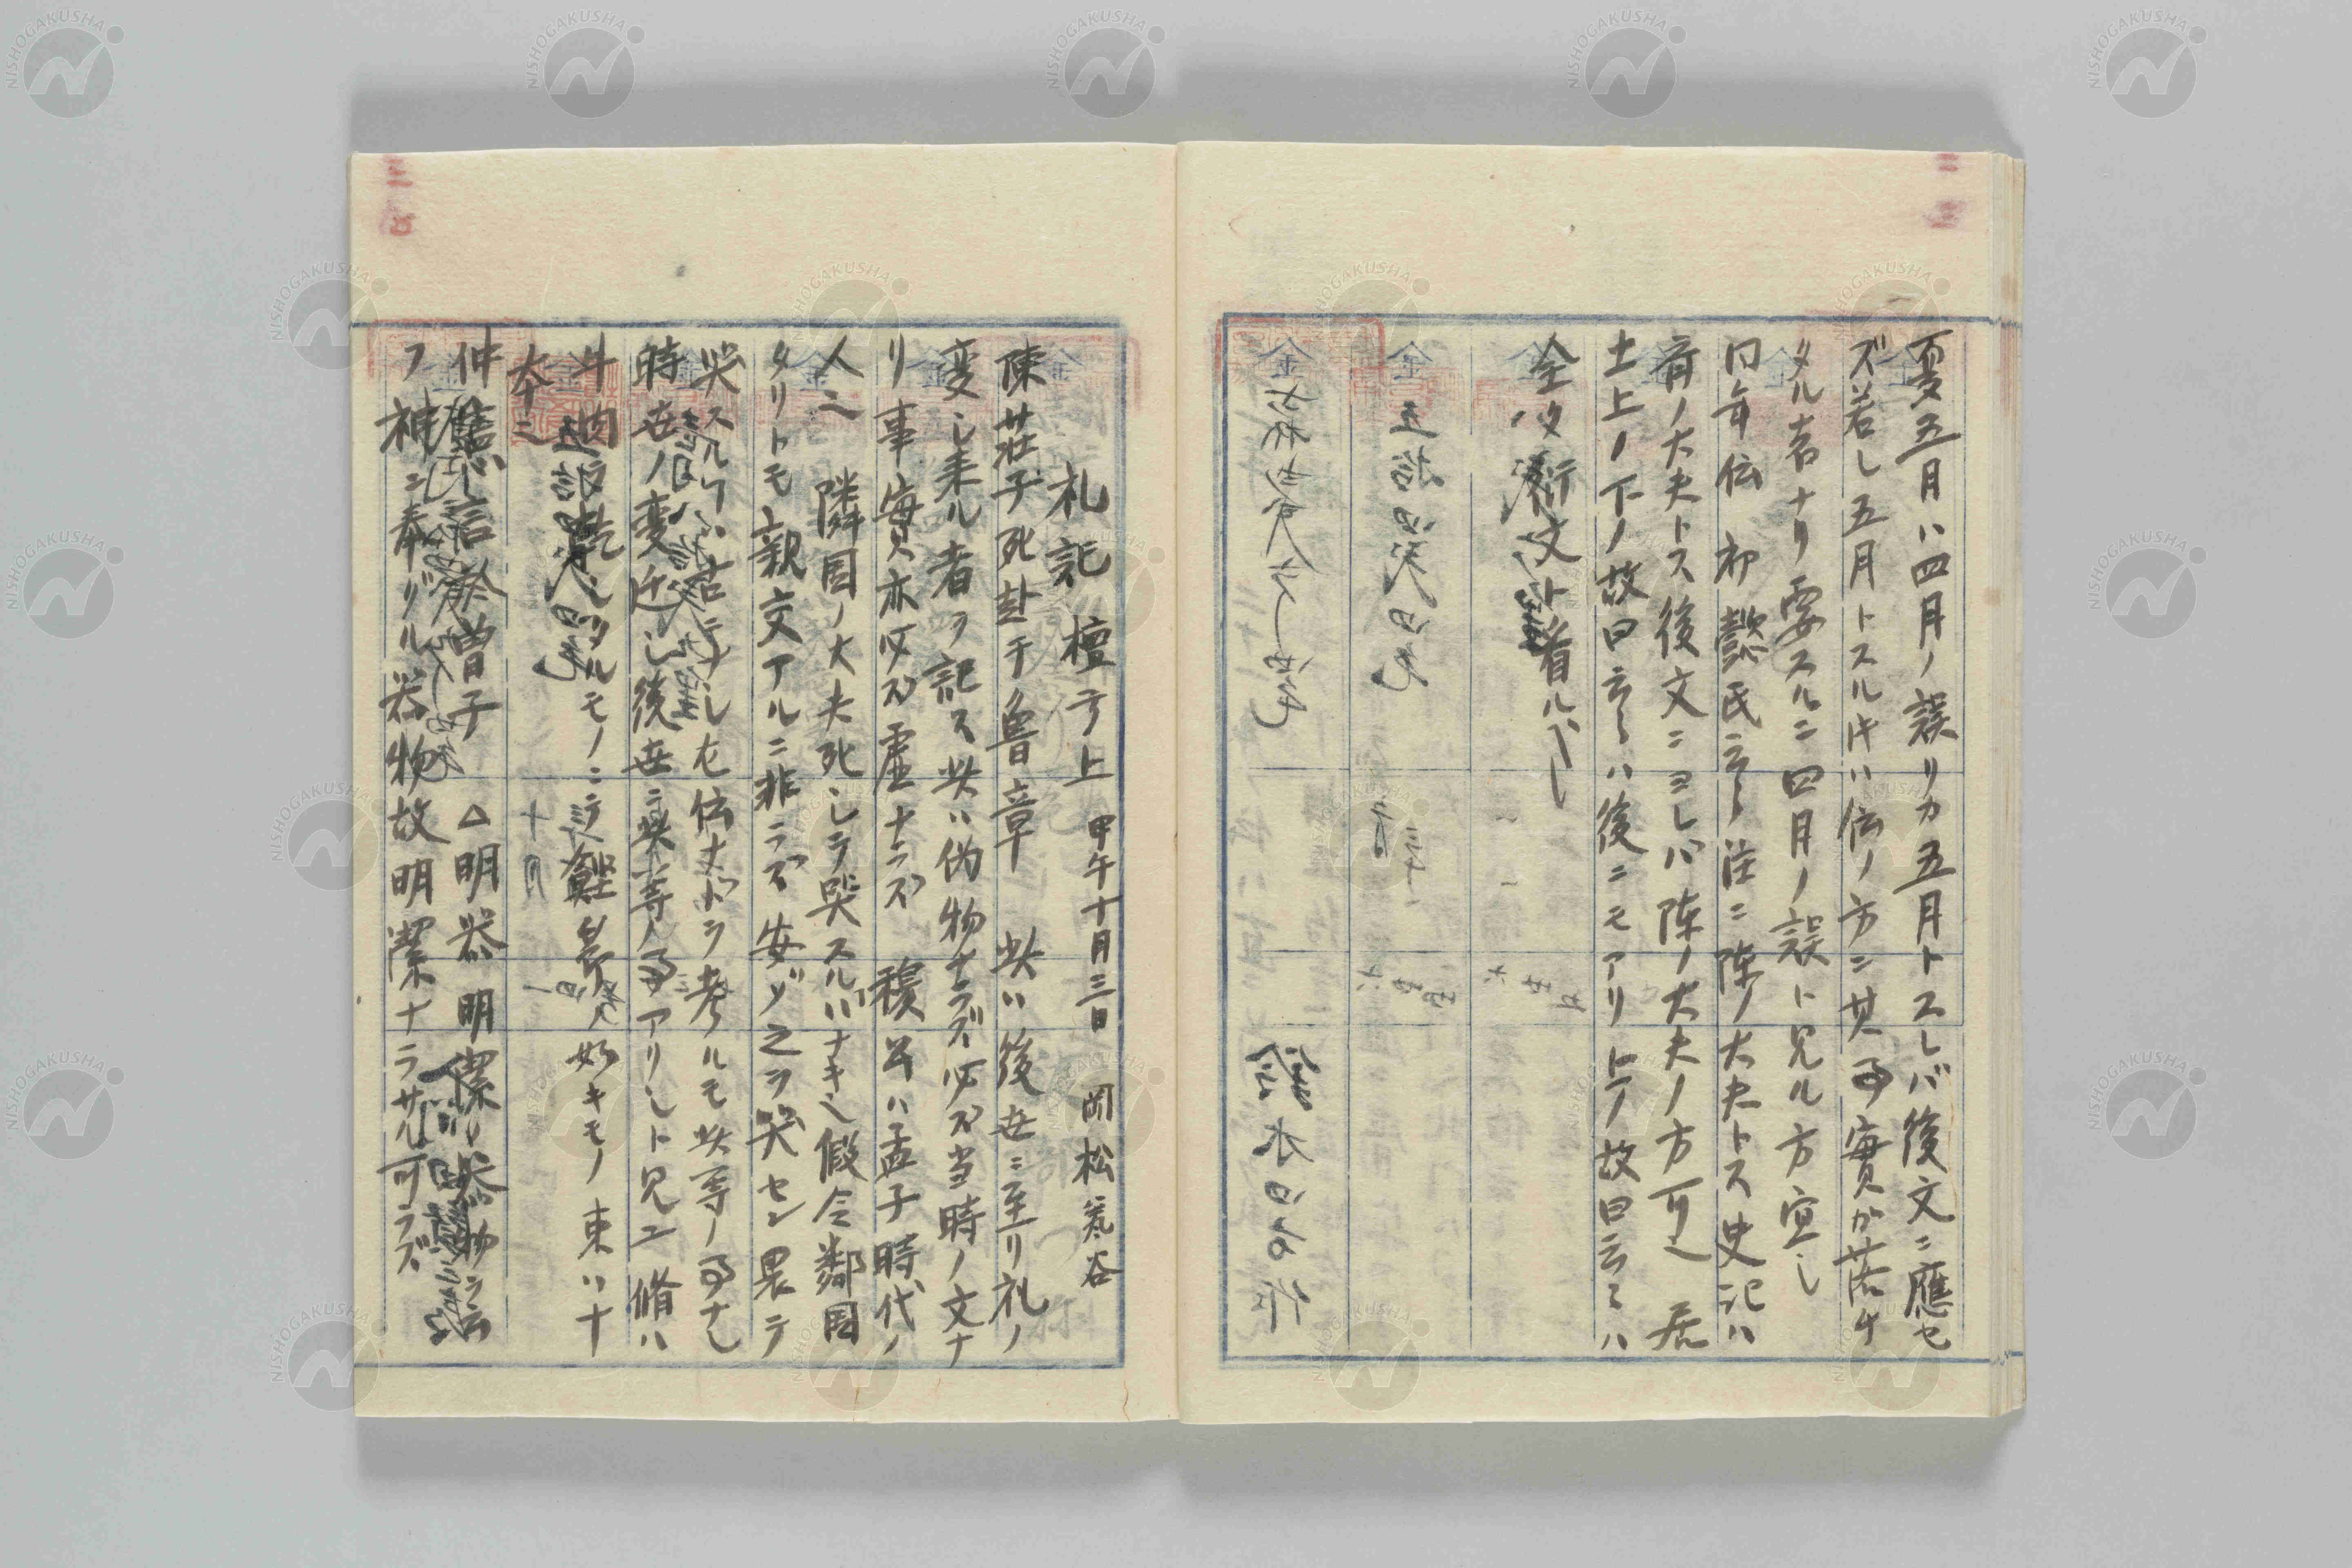 夏五月ハ四月ノ誤リカ五月トスレバ後文ニ應セ
ズ若シ五月トスルキハ伝ノ方ニ其事實ガ落チ
タル者ナリ要スルニ四月ノ誤ト見ル方宜シ
同年伝 初懿氏云々注ニ陳ノ大夫トス史記ハ
齊ノ大夫トス後文ニヨレバ陳ノ大夫ノ方可也 居
土上ノ下ノ故曰云々ハ後ニモアリ ノ故曰云々ハ
全ク衍文ト看ルベシ
礼記 檀弓上 甲午十月三日 岡松甕谷
陳莊子死赴于魯章 此ハ後世ニ至リ礼ノ
変シ来ル者ヲ記ス此ハ偽物ナラズ必ズ当時ノ文ナ
リ事實亦必ズ虚ナラズ 穆公ハ孟子時代ノ
人ニ 隣国ノ大夫死シテ哭スル ナキ也假令鄰国
タリトモ親交アルニ非ラズ安ゾ之ヲ哭セン果テ
哭スル ハ古ニナシ左伝ナドヲ考ルモ此等ノ事ナシ
時世ノ変迁シ後世ニ 此等ノ事アリシト見ユ 脩ハ
牛肉ヲ乾シタルモノニテ 好キモノ 束ハ十
本ニ
仲憲言於曽子 △明器 明潔ノ器物ヲ云
フ神ニ奉ゲル器物故明潔ナラザル可ラズ
NISHOGAKUSHA